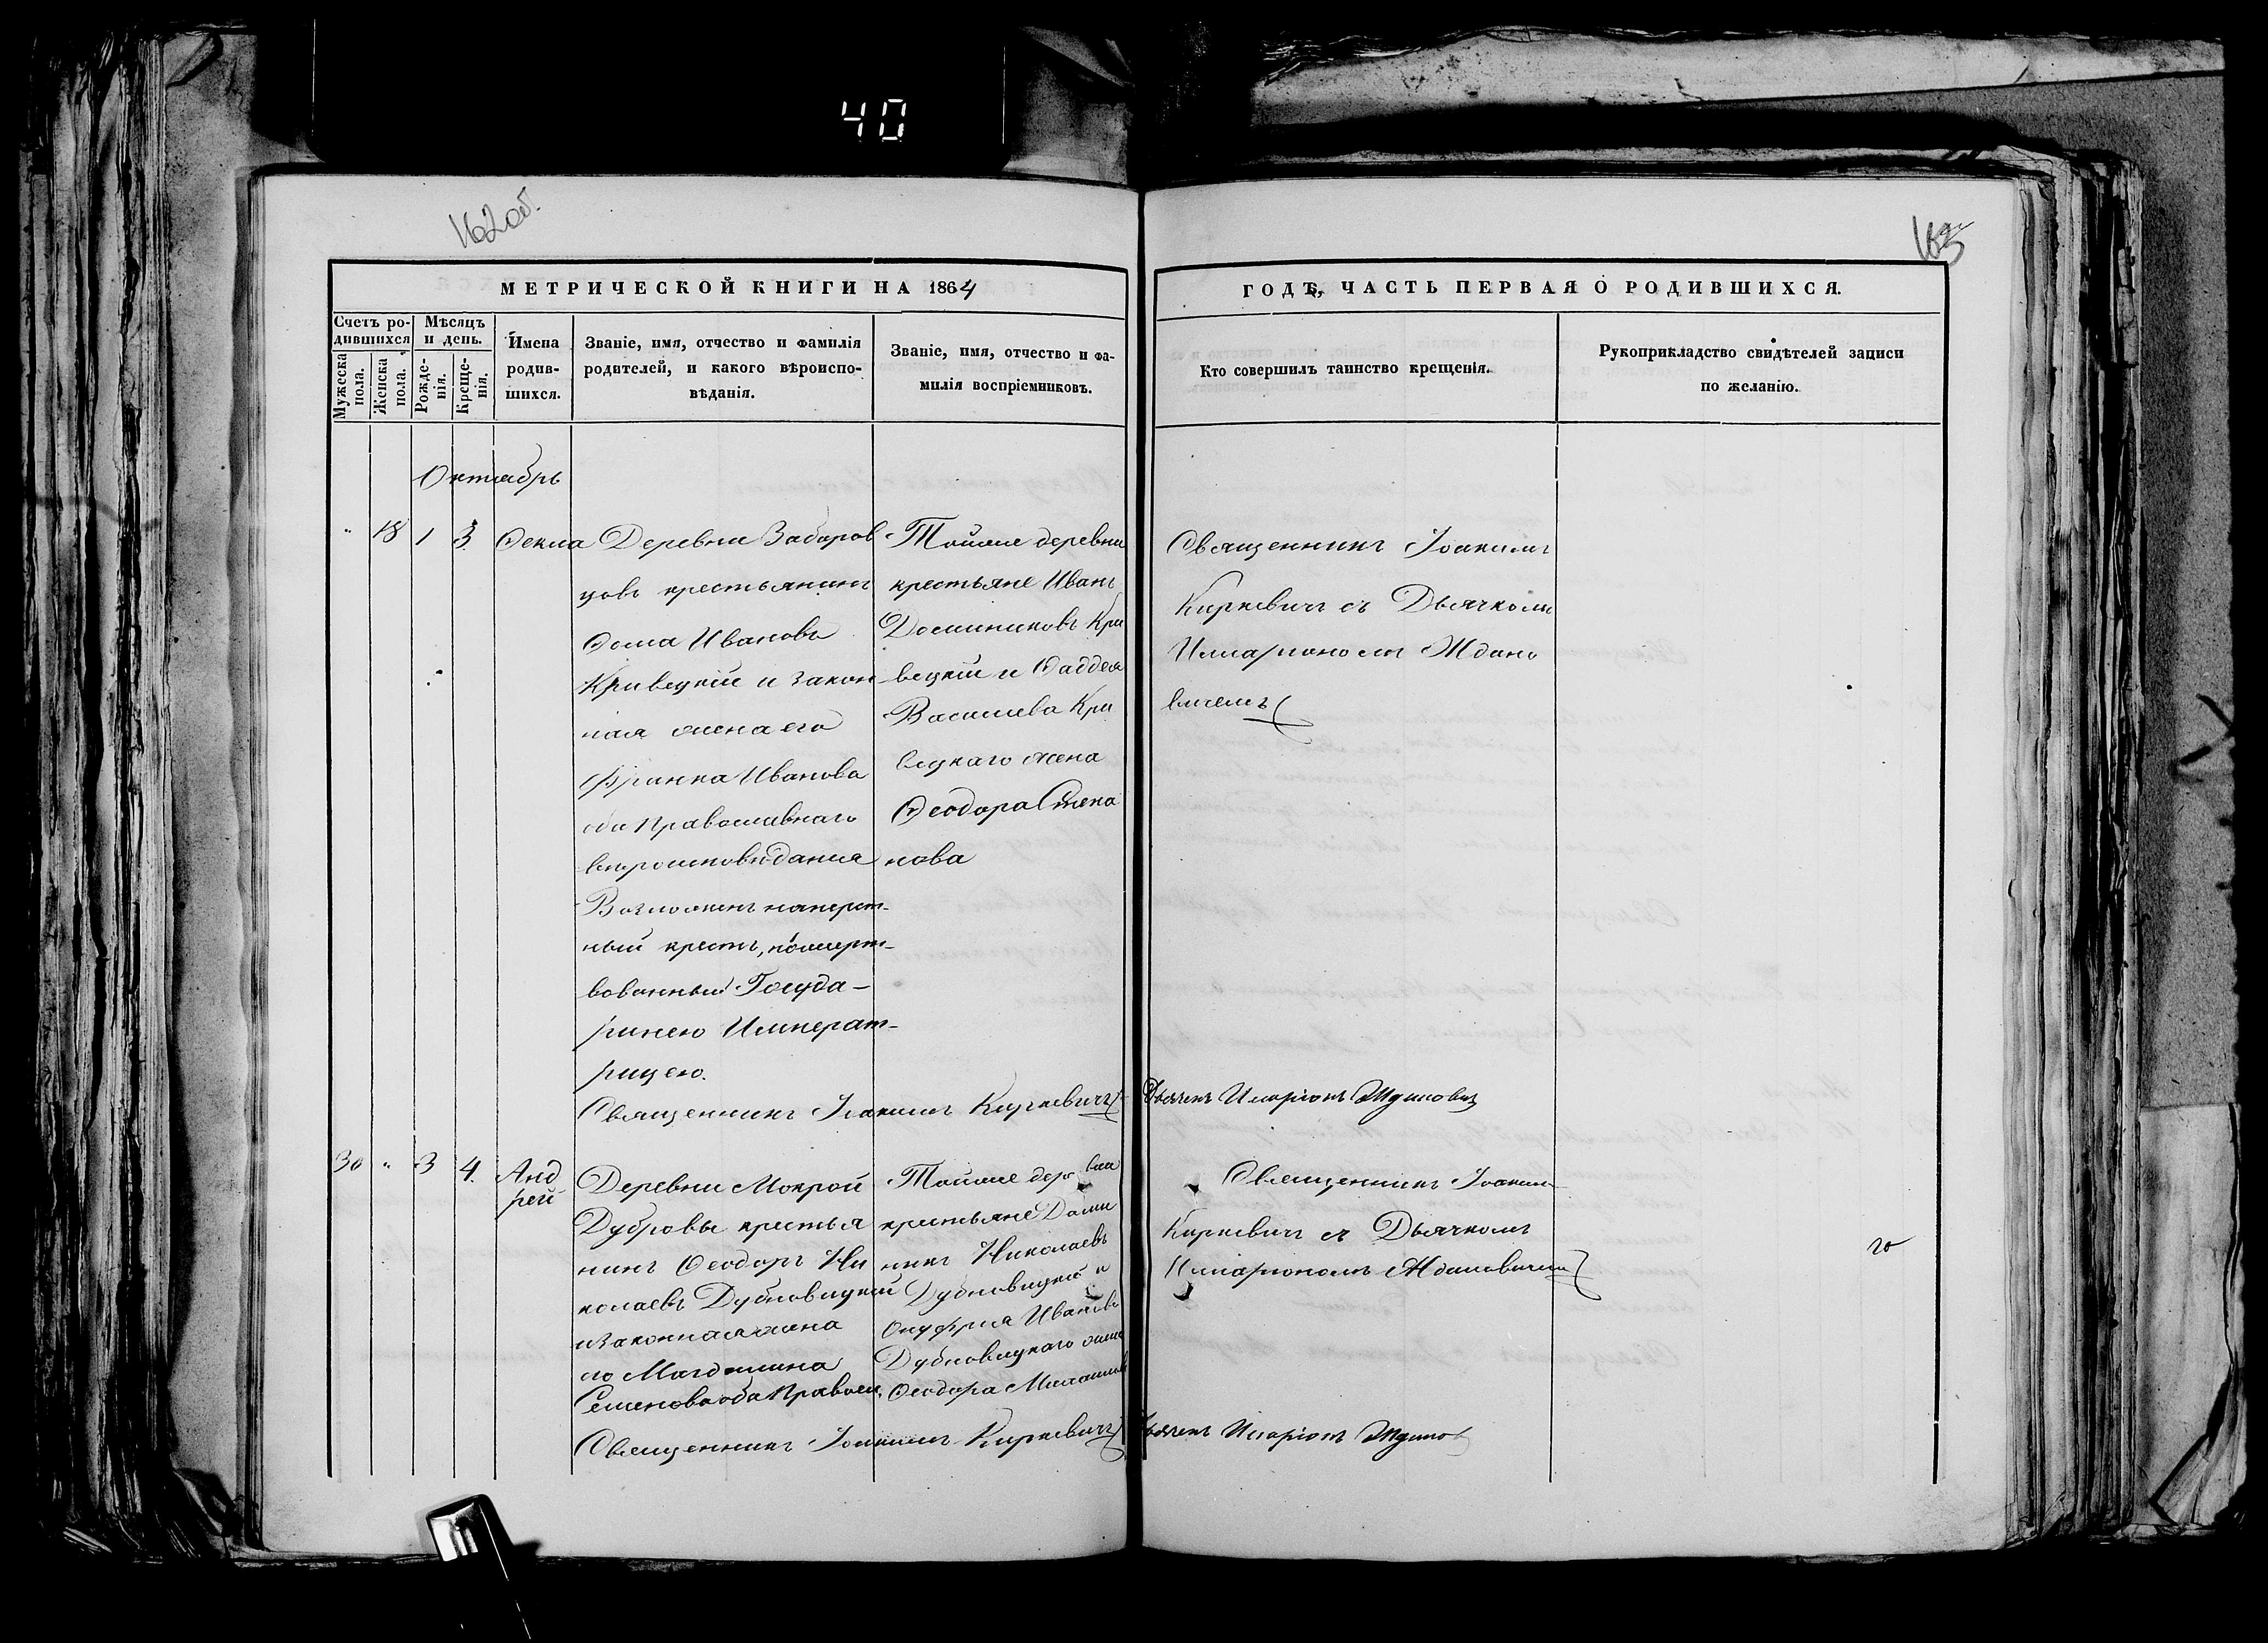 40
162об.
163
МЕТРИЧЕСКОЙ КНИГИ НА 1864
ГОДЪ, ЧАСТЬ ПЕРВАЯ О РОДИВШИХСЯ.
Счетъ ро-
дившихся
Мужеска
пола.
Женска
пола.
Мѣсяцъ
и день.
Рожде-
нія.
Креще-
нія.
Имена
родив-
шихся.
Званіе, имя, отчество и фамилія
родителей, и какого вѣроиспо-
вѣданія.
Званіе, имя, отчество и фа-
милія воспріемниковъ.
Кто совершилъ таинство крещенія.
Рукоприкладство свидѣтелей записи
по желанію.
Октябрь
" 18 1 3 Ѳекла
Деревни Забаров
цовъ крестьянинъ
Ѳома Ивановъ
Кривецкій и закон
ная жена его
Франка Иванова
оба Православнаго
вѣроисповѣданія
Возложенъ наперст-
ный крестъ, пожерт-
вованный Госуда-
ринею Император-
рицею.
Тойже деревни
крестьяне Иванъ
Доминиковъ Кри
вецкій и Ѳаддея
Василіева Кри
вецкаго жена
Ѳеодора Степа
нова
Священникъ Іоакимъ
Киркевичъ съ Дьячкомъ
Иларіономъ Ждано
вичемъ
Священникъ Іоакимъ Киркевичъ
Дьячекъ Иларіонъ Ждановичъ
30 " 3 4. Анд
рей
Деревни Мокрой
Дубровы крестья
нинъ Ѳеодоръ Ни
колаевъ Дубновицкій
и законная жена
его Магдалина
Семенова оба Правосл.
Тойже деревни
крестьяне Доми
никъ Николаевъ
Дубновицкій и
Онуфрія Иванова
Дубновицкаго жена
Ѳеодора
Священникъ Іоакимъ
Киркевичъ съ Дьячкомъ
Иларіономъ Ждановичемъ
Священникъ Іоакимъ Киркевичъ
Дьячекъ Иларіонъ Жданов